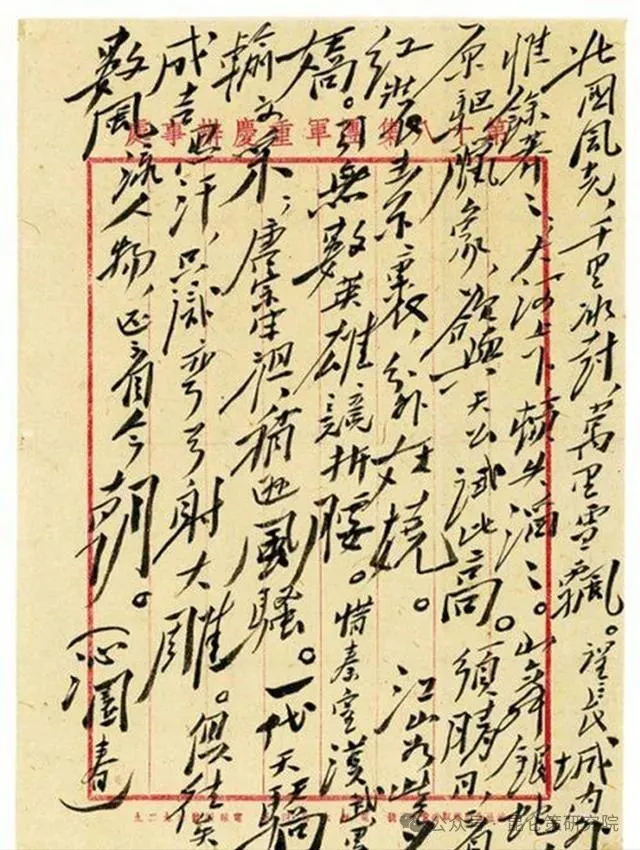 第十八集團軍重慶辦事處
北國風光，千里冰封，萬里雪飄。望長城內外
惟餘莽〻；大河上下，頓失滔〻。山舞銀蛇
原驅臘象，欲與天公試比高。須晴日，看
紅裝素裹，分外妖嬈。江山如此多
嬌。引無數英雄競折腰。惜秦皇漢武略
輸文采；唐宗宋祖，稍遜風騷。一代天驕
成吉思汗，只識彎弓射大雕。俱往矣
數風流人物，還看今朝。（沁園春）
公众号 · 昆仑策研究院